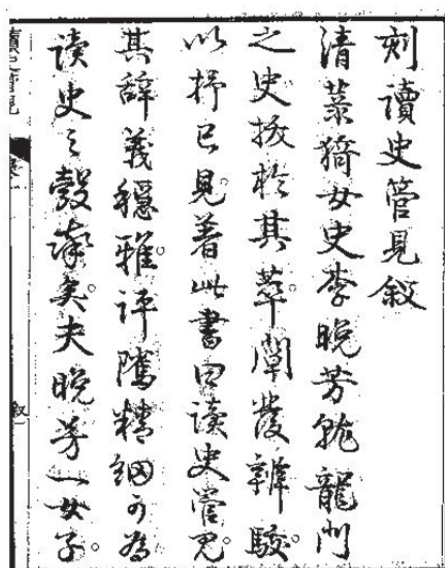 刻讀史管見叙
清菉猗女史李晚芳就龍門
之史拔於其萃闡發辯駁。
以抒己見。著此書曰讀史管見。
其辭義穩雅。評隲精細可為
读史之彀率矣。夫晚芳一女子。
讀史管見
叙